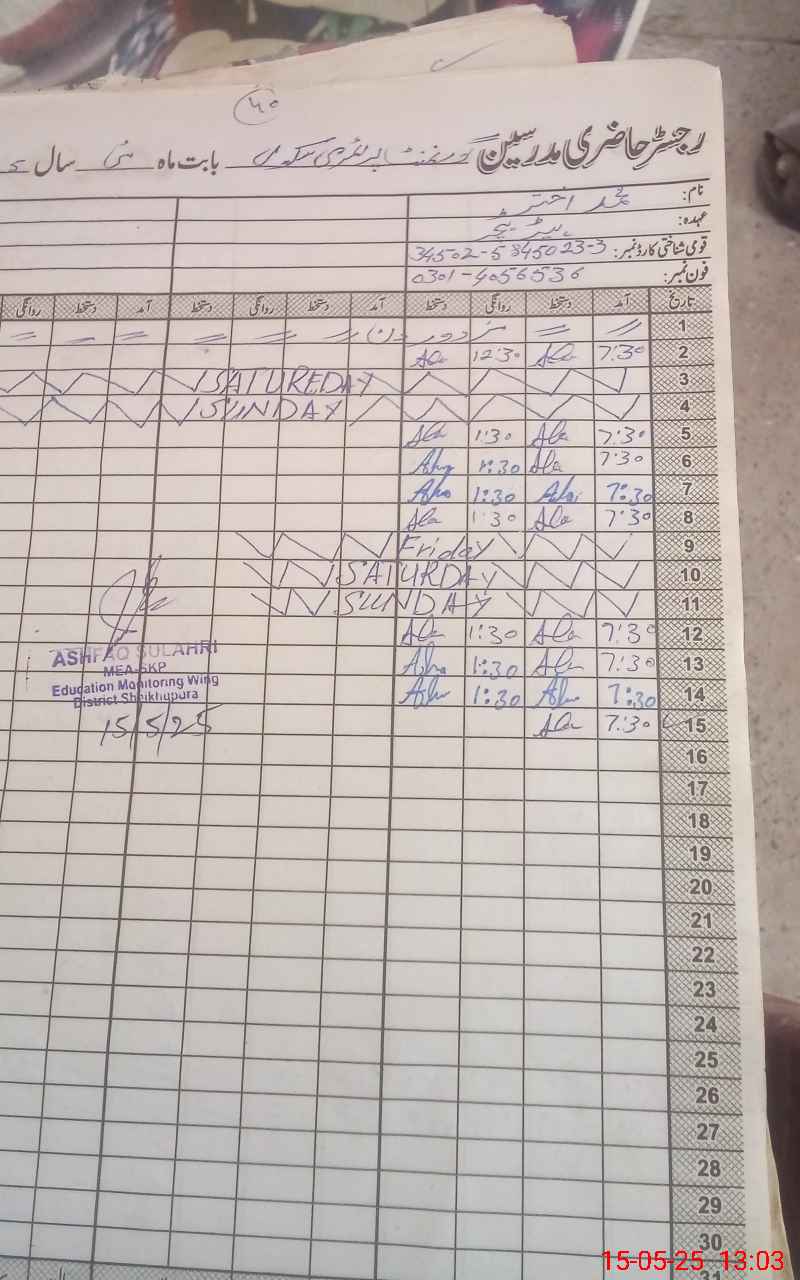 ۴۰
رجسٹر حاضری مدرسین گورنمنٹ پرائمری سکول بابت ماہ مئی سال
نام: محمد اختر
عہدہ: ہیڈ ٹیچر
قومی شناختی کارڈ نمبر: 34502-5845023-3
فون نمبر: 0301-4056536
تاریخ آمد دستخط روانگی دستخط آمد دستخط روانگی دستخط آمد دستخط روانگی
1 〃 〃 مزدور دن 〃 〃 〃 〃 〃 〃 〃
2 7:30 12:30
3 SATUREDAY
4 SUNDAY
5 7:30 1:30
6 7:30 1:30
7 7:30 1:30
8 7:30 1:30
9 Friday
10 SATURDAY
11 SUNDAY
12 7:30 1:30
13 7:30 1:30
14 7:30 1:30
15 7:30
ASHFAQ SULAHRI
MEA-SKP
Education Monitoring Wing
District Sheikhupura
15/5/25
16
17
18
19
20
21
22
23
24
25
26
27
28
29
30
31
15-05-25 13:03